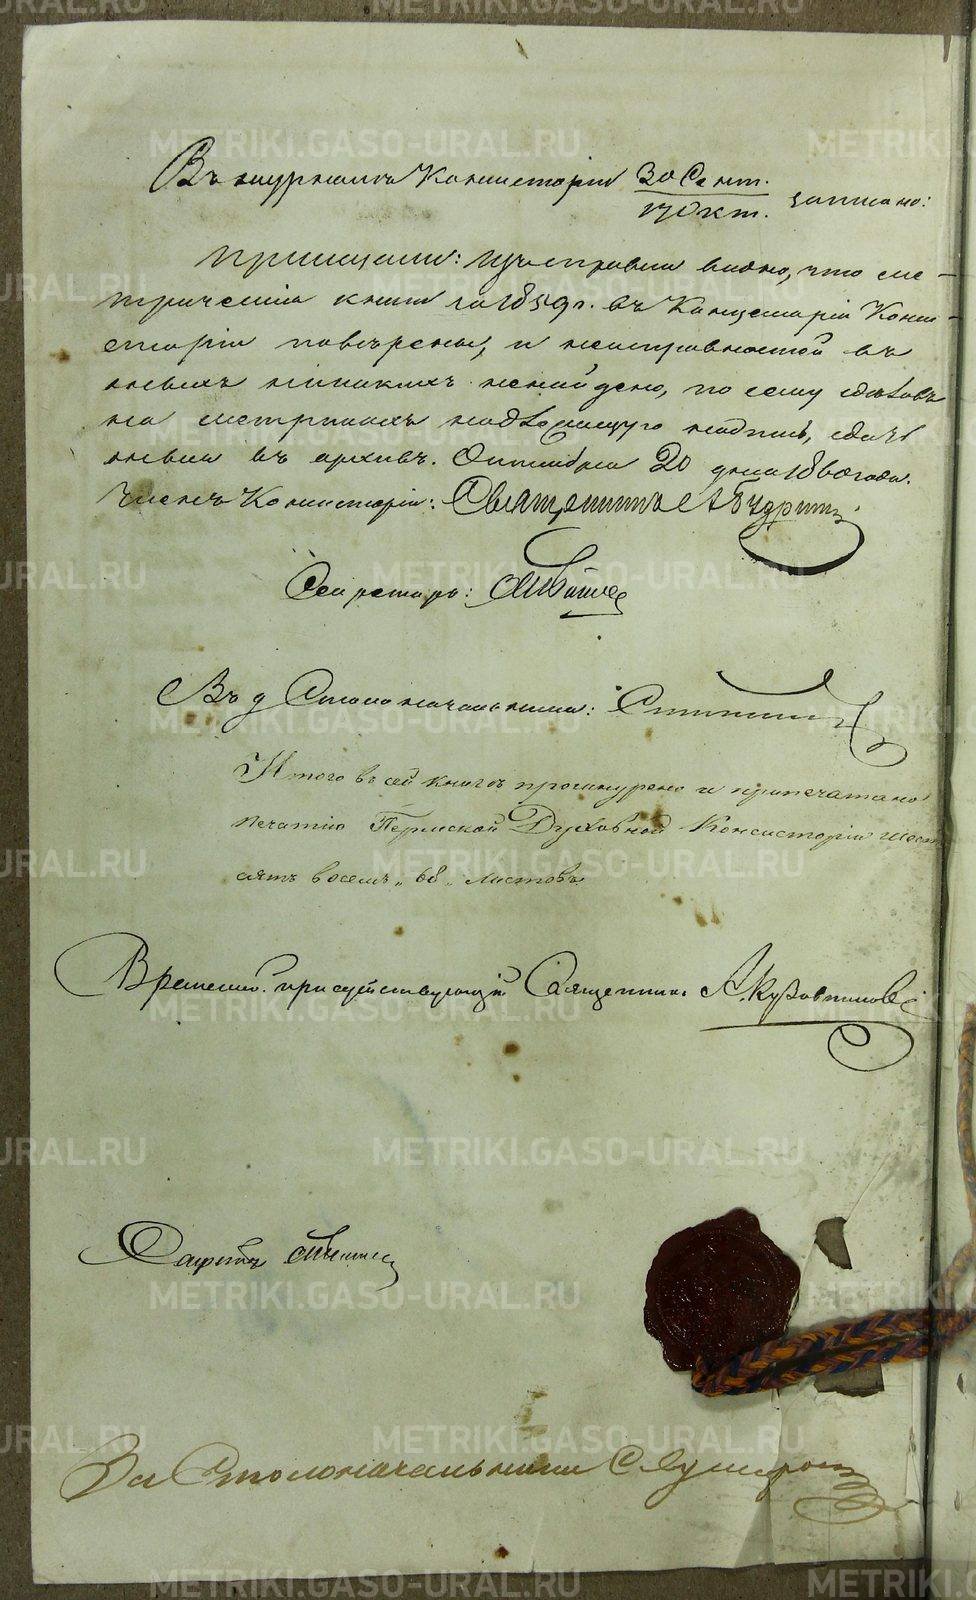 Въ журналѣ Консисторіи 30 Сент. / 17 Окт. записано:
Приказали: Изъ справки видно, что ме-
трическія книги за 1859 г. въ Канцеляріи Конси-
сторіи повѣрены, и неисправностей въ
оныхъ никакихъ не найдено, по сему сдѣлавъ
на метрикахъ надлежащую надпись, сдать
оныя въ архивъ. Октября 20 дня 1860 года.
Членъ Консисторіи: Священникъ
Секретарь:
Въ д Столоначальника:
Итого въ сей книгѣ прошнуровано и припечатано
печатію Пермской Духовной Консисторіи шест
сятъ восемь „68„ листовъ
Временно присутствующій Священникъ А.
Секретарь
За Столоначальника
METRIKI.GASO-URAL.RU